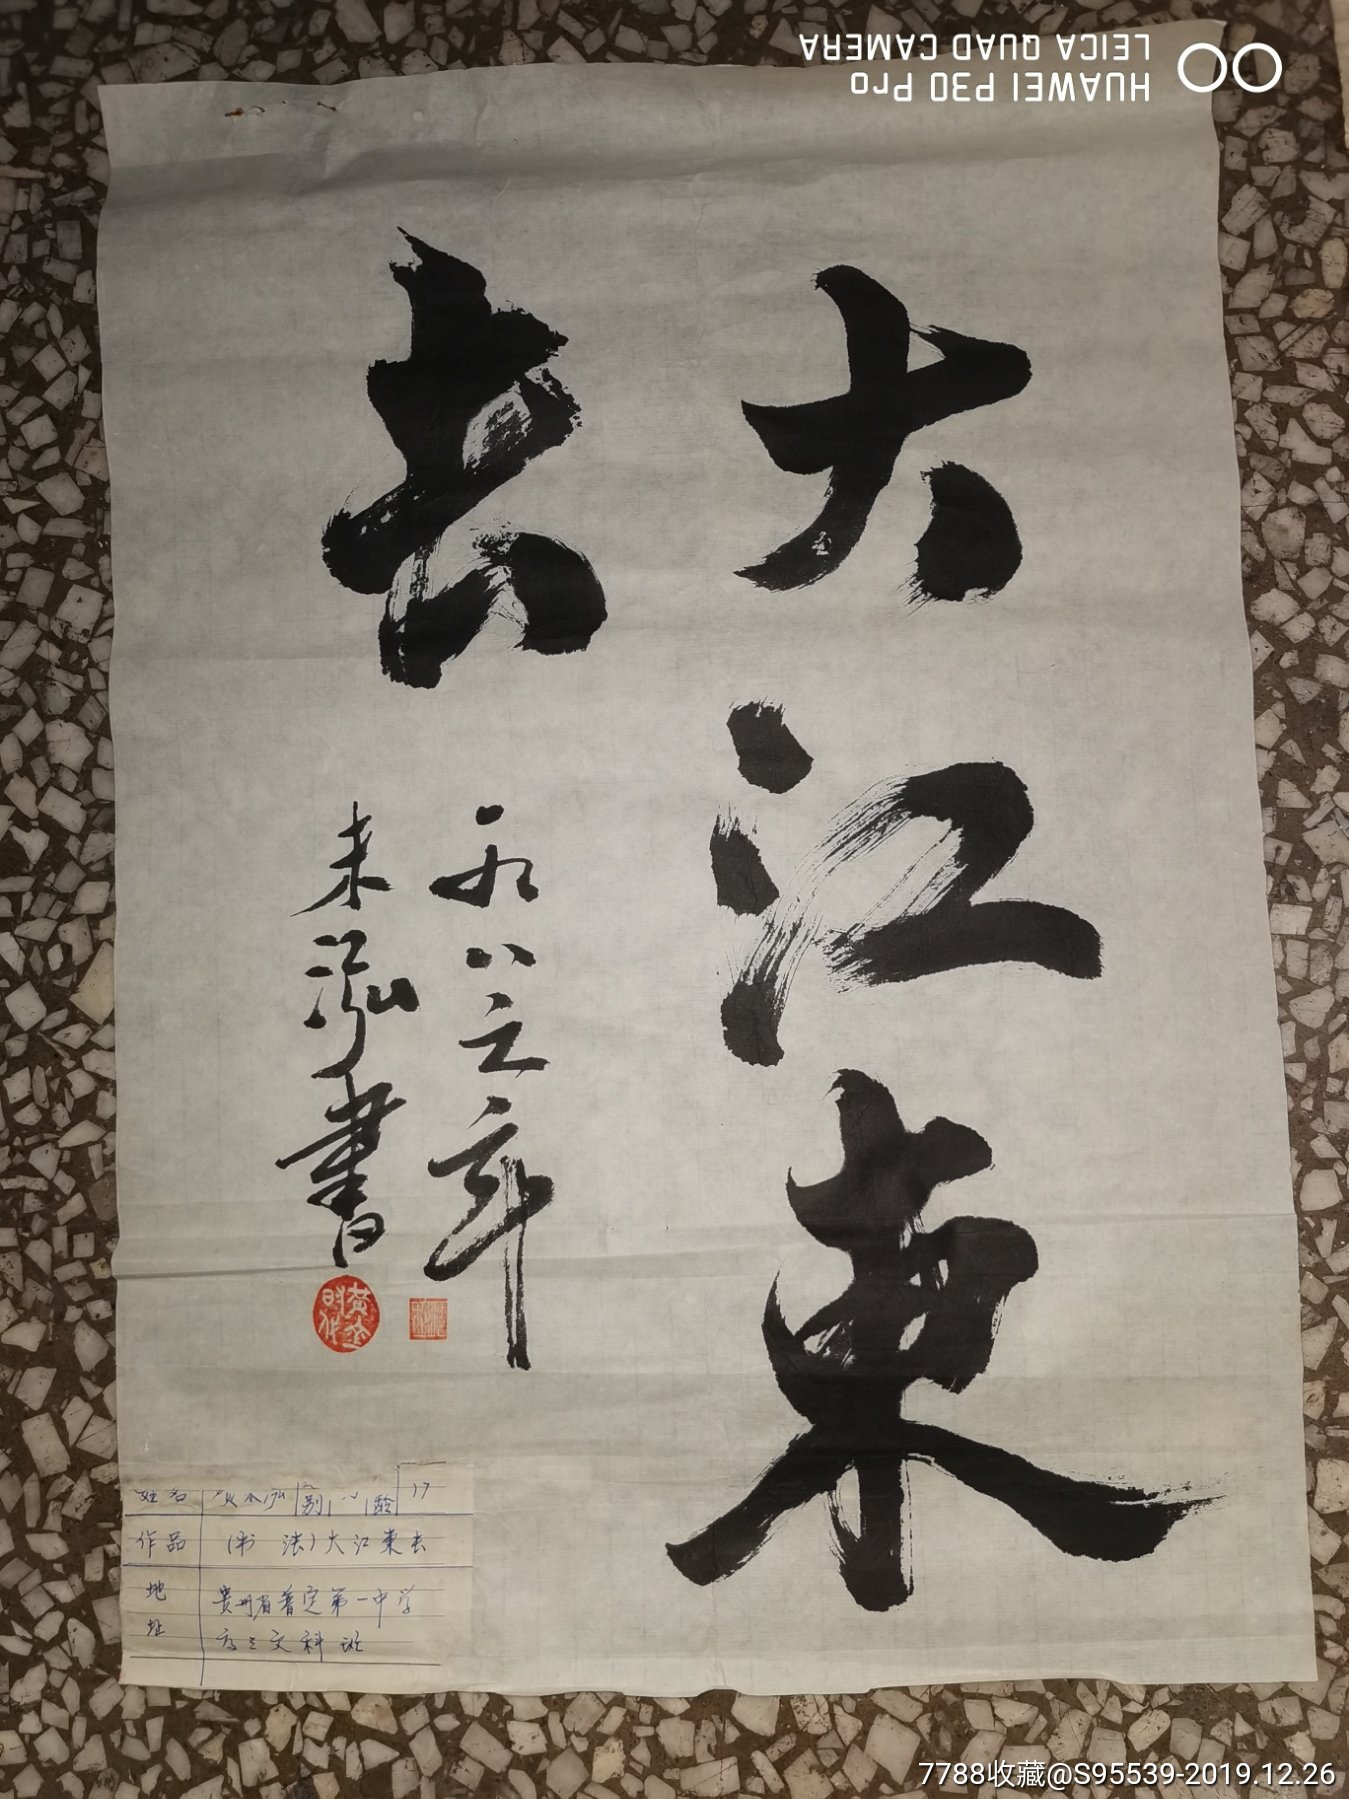 HUAWEI P30 Pro
LEICA QUAD CAMERA
大江東
去
一九八三年
未泓書
姓名 别 龄 17
作品 (书 法)大江東去
地址 贵州省普定第一中学
高三文科班
7788收藏@S95539-2019.12.26